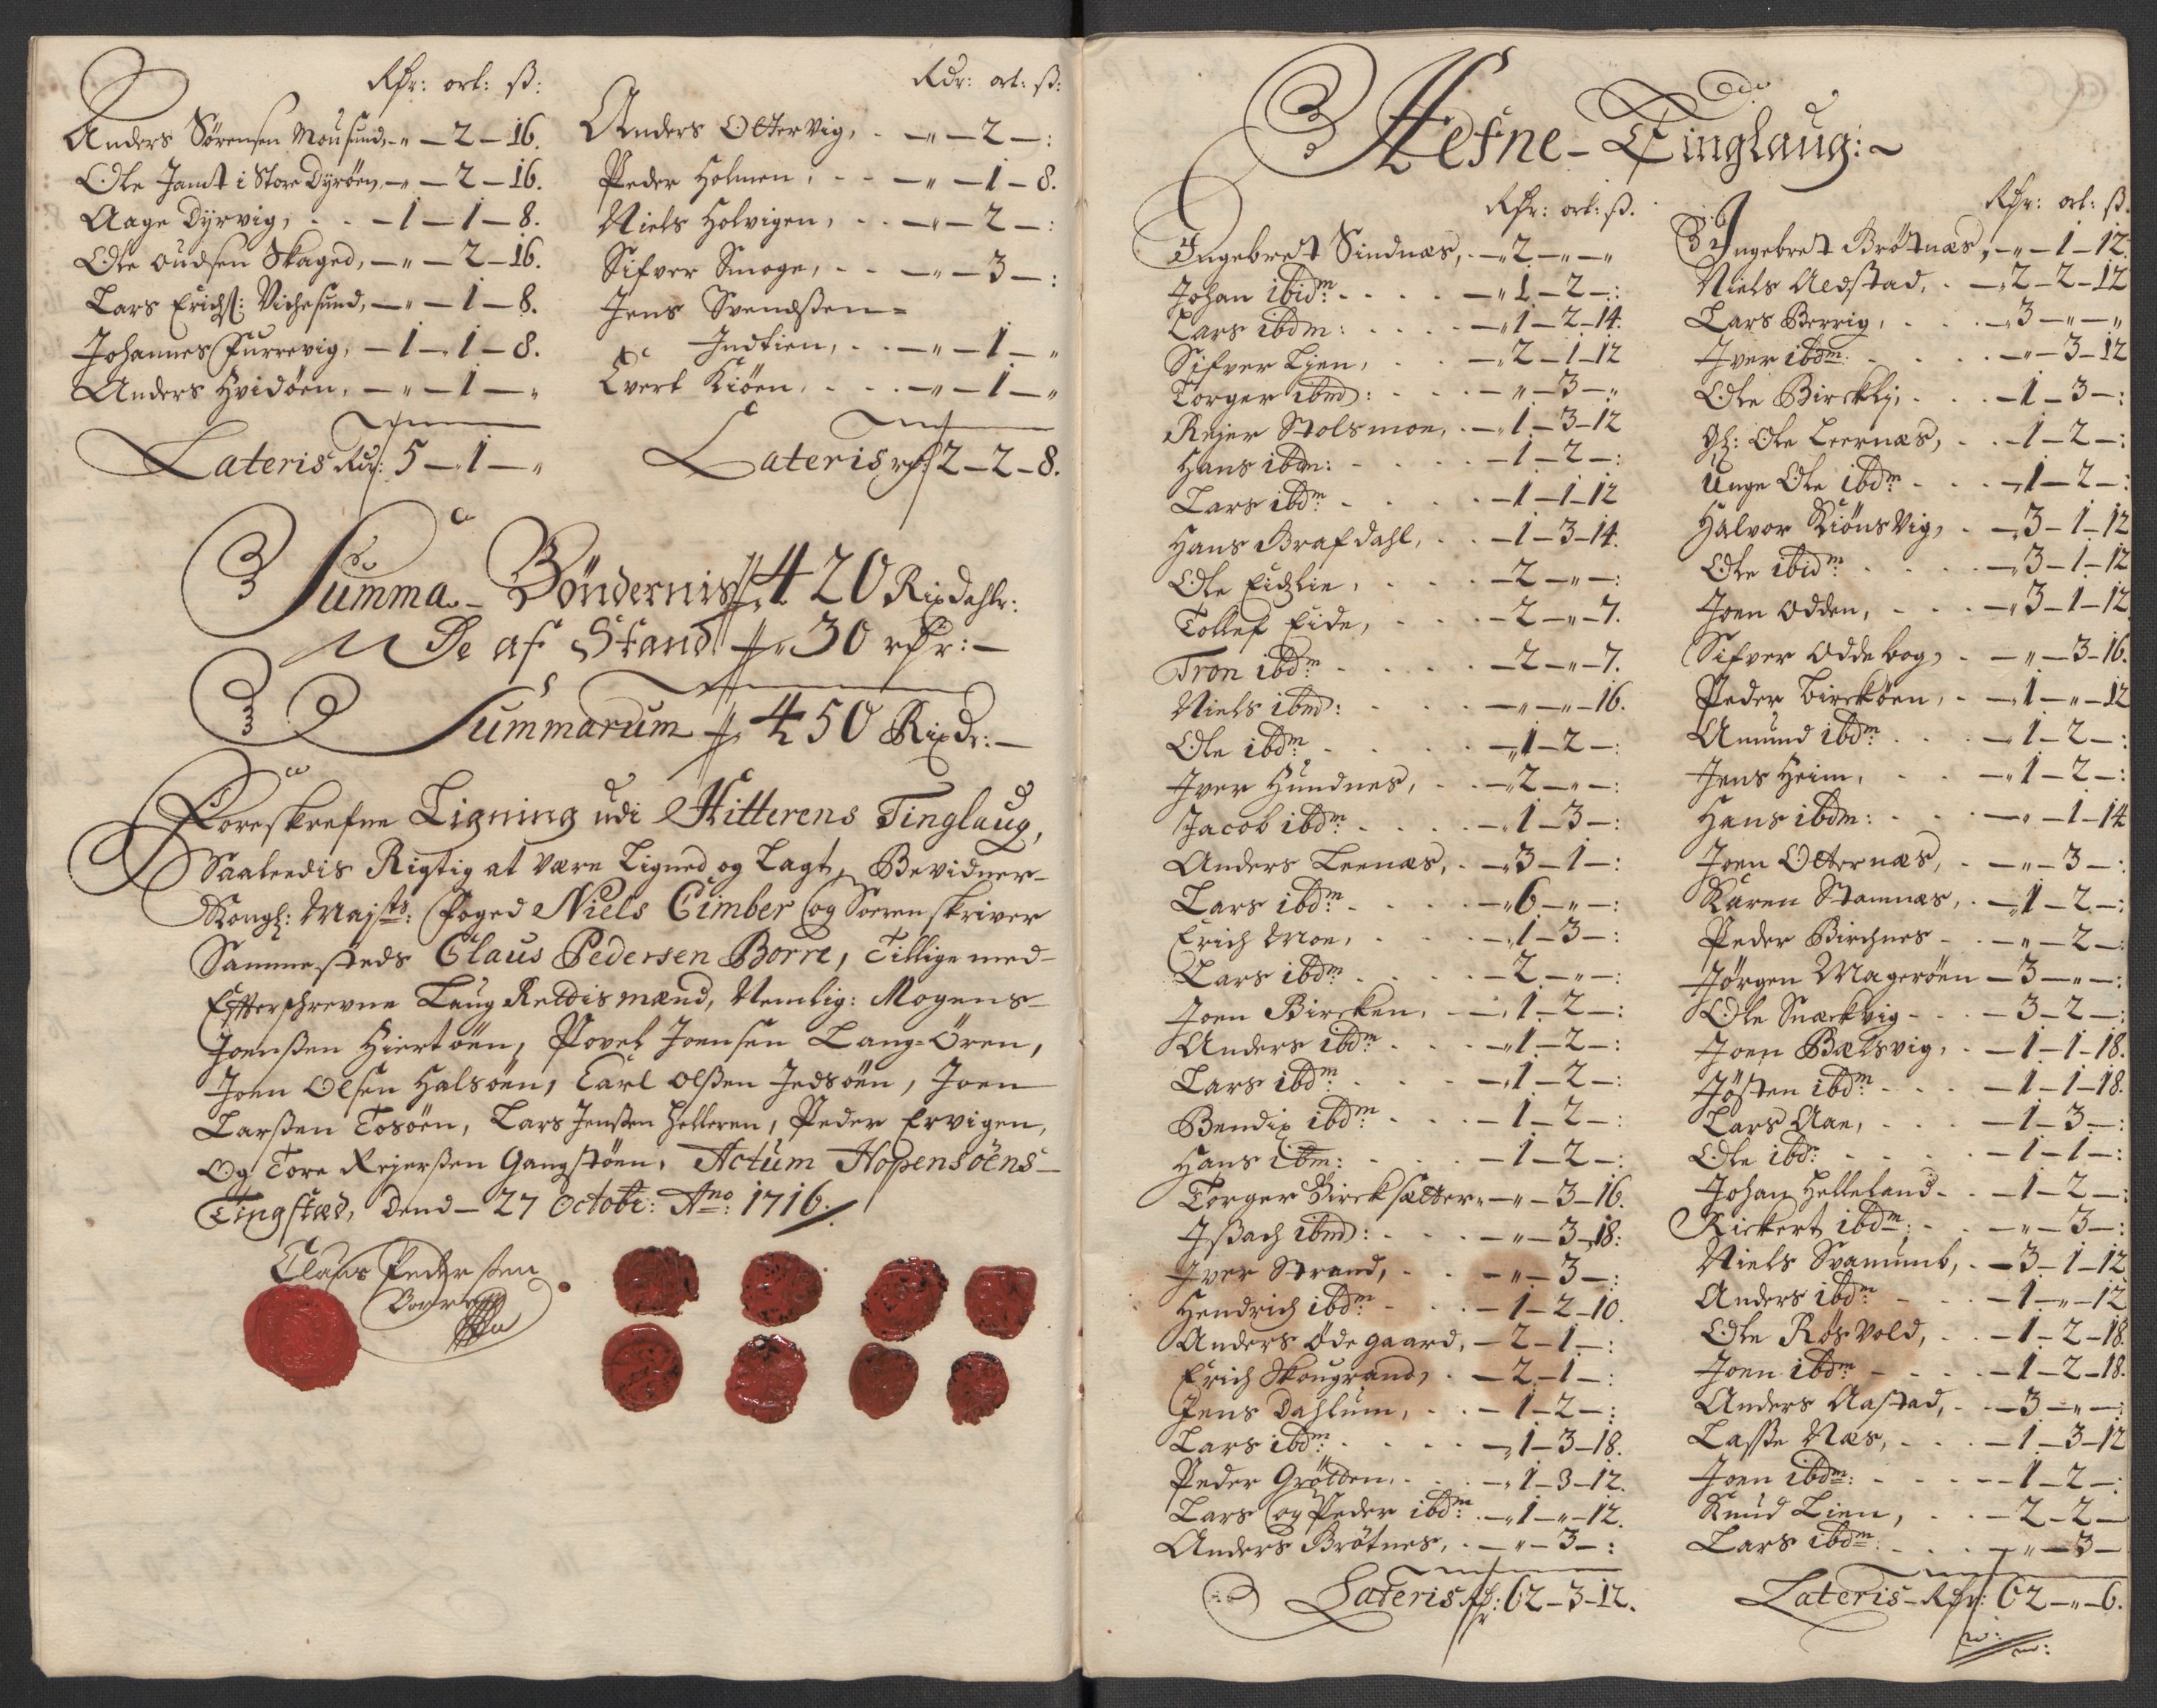 Rdr: ort: ß:
Anders Sørensen Mousund, - „ - 2 - 16.
Ole Jamt i Store Dyrøen, - „ - 2 - 16.
Aage Dyrvig, - 1 - 1 - 8.
Ole Oudsen Skaged, - „ - 2 - 16.
Lars Erichs: Vichesund, - „ - 1 - 8.
Johannes Furrevig, - 1 - 1 - 8.
Anders Hvidøen, - „ - 1 - „
Lateris Rdr: 5 - 1 - „
Rdr: ort: ß:
Anders Ottervig, - „ - 2 - :
Peder Holmen, - „ - 1 - 8.
Niels Holvigen, - „ - 2 - :
Sifver Smoge, - „ - 3 - :
Jens Svendßen =
Indtien, - „ - 1 - „
Evert Kiöen, - „ - 1 - „
Lateris rdr: 2 - 2 - 8.
Summa - Böndernis 420 Rixdahlr:
De af Stand 30 rdr: -
Summarum 450 Rixdr: -
Foreskrefne Ligning udi Hitterens Tinglaug,
Saaleedis Rigtig at være Ligned og Lagt, Bevidner -
Kongl: Majsts: Foged Niels Cimber og Sorenskriver
Sammesteds Claus Pedersen Borre, Tillige med -
Effterschrevne Laug Rettis mænd, Nemlig: Mogens -
Joenßen Hiertöen, Povel Joensen Lang-Ören,
Joen Olsen Halsöen, Carl Olßen Jedsöen, Joen
Larßen Tosöen, Lars Jenßen Helleren, Peder Ervigen,
Og Tore Rejerßen Gangstöen, Actum Hopensöens -
Tingstæd, Dend - 27 Octobr: Ano: 1716:
Claus Pedersen
Borre
Hefne - Tinglaug: ~
Rdr: ort: ß.
Ingebret Sindnæs, - 2 - „ - „
Johan ibidm - „ 1 - 2 - :
Lars ibdm: - „ 1 - 2 - 14.
Sifver Lien, - „ 2 - 1 - 12
Torger ibmd: - „ - 3 - „
Rejer Stolsmoe, - „ 1 - 3 - 12
Hans ibdm: - 1 - 2 - :
Lars ibdm - 1 - 1 - 12
Hans Grafdahl, - 1 - 3 - 14.
Ole Eidslie, - 2 - „ - :
Tollef Eide, - 2 - „ - 7.
Tron ibdm - 2 - „ - 7.
Niels ibmd: - „ - „ - 16.
Ole ibdm - „ 1 - 2 - :
Iver Hundnes, - 2 - „ - :
Jacob ibdm - „ 1 - 3 - :
Anders Leenæs, - „ 3 - 1 - :
Lars ibdm - „ 6 - „ - :
Erich Moe, - „ 1 - 3 - :
Lars ibdm - 2 - „ - :
Joen Bircken, - „ 1 - 2 - :
Anders ibdm - „ 1 - 2 - :
Lars ibdm - „ 1 - 2 - :
Bendix ibdm - 1 - 2 - :
Hans ibm: - 1 - 2 - :
Torger Bircksætter - „ - 3 - 16.
Ißach ibmd: - „ - 3 - 18:
Iver Strand, - „ - 3 - :
Hendrich ibdm - 1 - 2 - 10.
Anders Ödegaard, - 2 - 1 - :
Erich Skougrand, - 2 - 1 - :
Jens Dahlum, - 1 - 2 - :
Lars ibdm: - „ 1 - 3 - 18.
Peder Grötten, - „ 1 - 3 - 12.
Lars og Peder ibdm: - „ 1 - „ - 12.
Anders Brötnes, - „ - 3 - :
Lateris Rdr: 62 - 3 - 12.
Rdr: ort: ß.
Ingebret Brötnæs, - „ - 1 - 12.
Niels Aedstad, - „ 2 - 2 - 12
Lars Berrig, - 3 - „ - „
Iver ibdm: - „ - 3 - 12
Ole Bircklj, - 1 - 3 - :
Gl: Ole Leernæs, - 1 - 2 - :
Unge Ole ibdm - 1 - 2 - :
Halvor Kiönsvig, - 3 - 1 - 12
Ole ibidm - „ 3 - 1 - 12
Joen Odden, - „ 3 - 1 - 12
Sifver Oddebog, - „ - 3 - 16.
Peder Birköen, - „ 1 - „ - 12
Amund ibdm - 1 - 2 - :
Jens Heim, - „ 1 - 2 - :
Hans ibdm: - „ - 1 - 14
Joen Otternæs, - „ - 3 - :
Karen Stamnæs, - „ 1 - 2 - :
Peder Birchnes - „ - 2 - :
Jörgen Magerøen - 3 - „ - :
Ole Snækvig - 3 - 2 - :
Joen Bælsvig, - 1 - 1 - 18.
Jösten ibdm - 1 - 1 - 18.
Lars Aae, - 1 - 3 - :
Ole ibd: - 1 - 1 - :
Johan Helleland - 1 - 2 - :
Rickert ibdm: - „ - 3 - :
Niels Svanumb, - 3 - 1 - 12
Anders ibdm - 1 - „ - 12
Ole Rösvold, - 1 - 2 - 18.
Joen ibdm - 1 - 2 - 18.
Anders Aastad, - 3 - „ - :
Lasse Næs, - 1 - 3 - 12
Joen ibdm: - 1 - 2 - :
Knud Lien, - 2 - 2 -
Lars ibdm: - „ - 3 -
Lateris - Rdr: 62 - „ - 6.